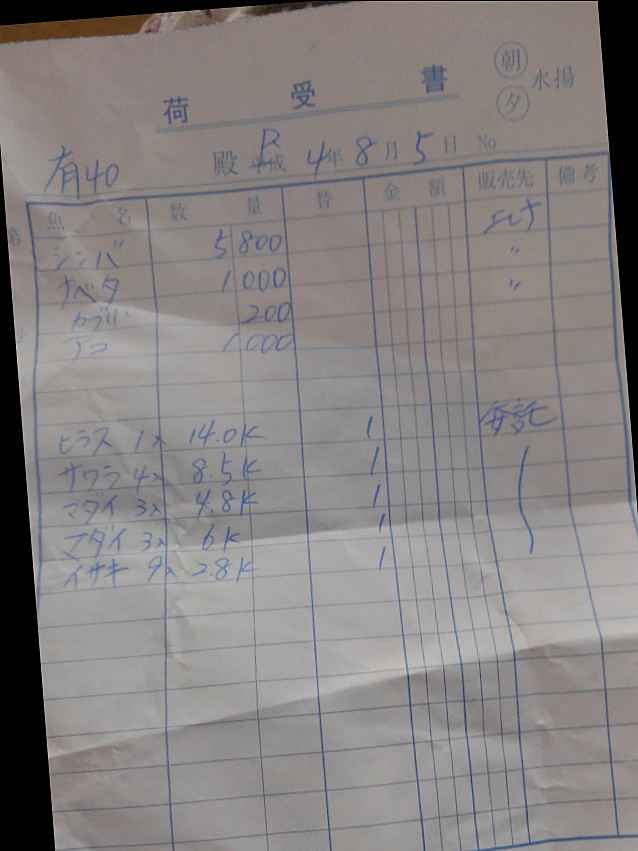 荷受書
朝
夕
水揚
有40 殿 平成 R 4年 8月 5日 No
魚名 数量 替 金額 販売先 備考
シンバ 5 800
ナベタ 1 000 〃
カブリ 200 〃
1 000
ヒラス 1入 14.0K 1 委託
サワラ 4入 8.5K 1
マダイ 3入 4.8K 1
マダイ 3入 6K 1
イサキ 9入 2.8K 1